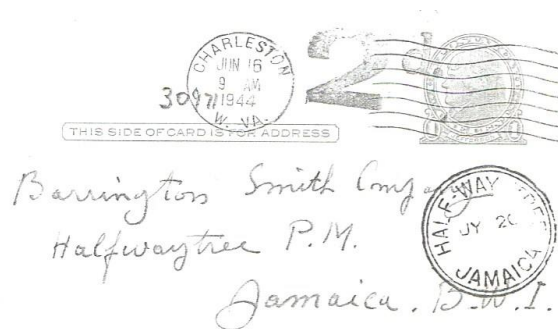 CHARLESTON
JUN 16
9 AM
1944
W. VA.
30971
2
THIS SIDE OF CARD IS FOR ADDRESS
Barrington Smith Company
Halfwaytree P.M.
Jamaica. B.W.I.
HALF-WAY TREE
JY 20
JAMAICA